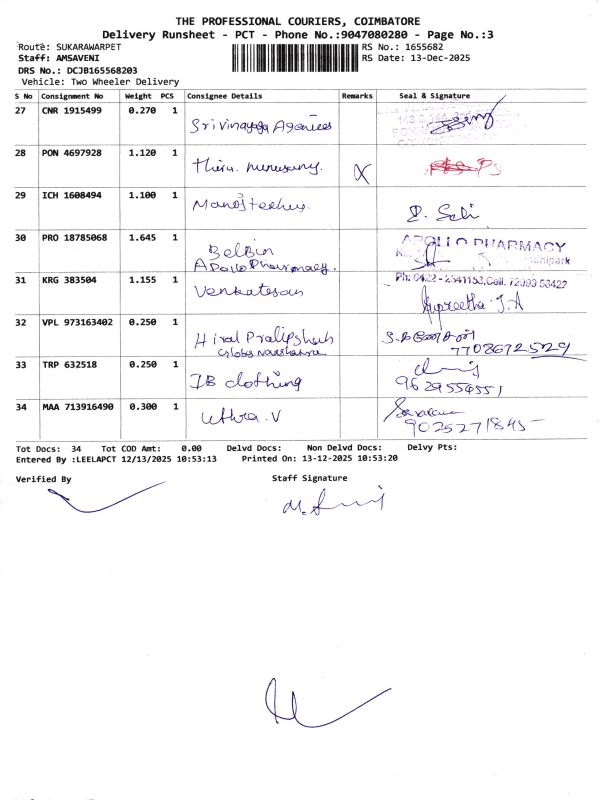 THE PROFESSIONAL COURIERS, COIMBATORE
Delivery Runsheet - PCT - Phone No.:9047080280 - Page No.:3
Route: SUKARAWARPET RS No.: 1655682
Staff: AMSAVENI RS Date: 13-Dec-2025
DRS No.: DCJB165568203
Vehicle: Two Wheeler Delivery
S No Consignment No Weight PCS Consignee Details Remarks Seal & Signature
27 CNR 1915499 0.270 1 Srivinayaga Agencies
28 PON 4697928 1.120 1 Thiru. murugany. X
29 ICH 1608494 1.100 1
30 PRO 18785068 1.645 1 Belbin APOLLO PHARMACY
Apollo Pharmacy.
31 KRG 383504 1.155 1 Venkatesan Ph: 0422 - 2541153, Cell: 72993 53427
Supreetha J.A
32 VPL 973163402 0.250 1 Hiral
7708672529
33 TRP 632518 0.250 1 IB clothing
9629554551
34 MAA 713916490 0.300 1 Uthra.V
9025271845
Tot Docs: 34 Tot COD Amt: 0.00 Delvd Docs: Non Delvd Docs: Delvy Pts:
Entered By :LEELAPCT 12/13/2025 10:53:13 Printed On: 13-12-2025 10:53:20
Verified By Staff Signature